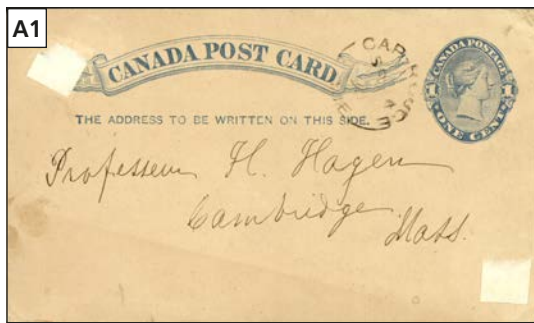 A1
CANADA POST CARD
CANADA POSTAGE
1 1
ONE CENT
THE ADDRESS TO BE WRITTEN ON THIS SIDE.
Professeur H. Hagen
Cambridge
Mass.